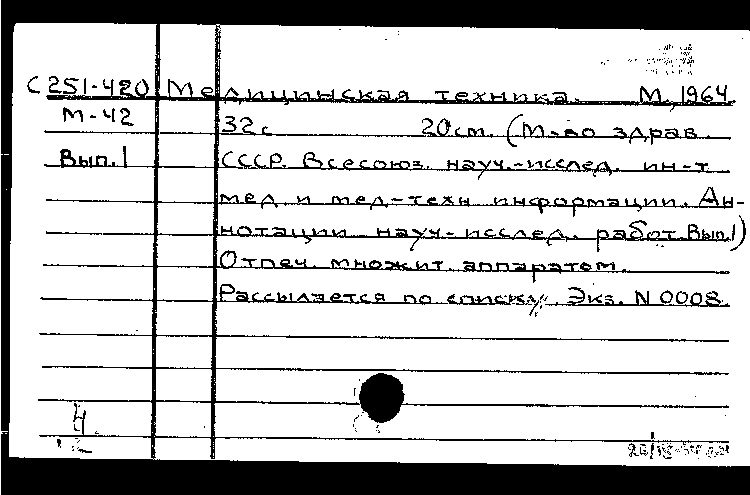 С 251-420 Медицинская техника. М., 1964
М-42 32с 20см. (М-во здрав.
Вып. 1 СССР. Всесоюз. науч.-исслед. ин-т
мед. и мед-техн информации. Ан-
нотации науч-исслед. работ. Вып. 1)
Отпеч. множит. аппаратом.
Рассылается по списку. Экз. N 0008.